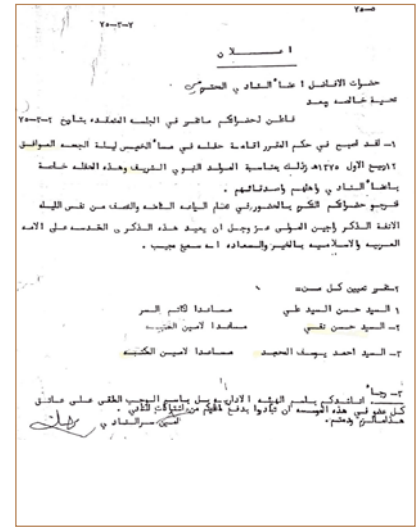 ٢٥-٥
٢٥-٣-٢
اعـــلان
حضرات الافاضل اعضاء النادي المحترمين
تحية خالصه وبعد
في الجلسه المنعقده بتاريخ ٢-٣-٢٥
١- لقد اصبح في حكم المقرر اقامة حفله في مساء الخميس ليلة الجمعه الموافق
١٢ ربيع الاول ١٣٧٥هـ وذلك بمناسبة المولد النبوي الشريف وهذه الحفله خاصة
باعضاء النادي واهلهم واصدقائهم .
فنرجو حضراتكم الكرم بالحضور في تمام الساعه الثامنه والنصف من نفس الليله
الانفة الذكر راجين المولى عز وجل ان يعيد هذه الذكرى المقدسه على الامه
العربيه والاسلاميه بالخير والسعاده انه سميع مجيب .
٢- تقرر تعيين كل مـــن=
١ - السيد حسن السيد علي مساعدا لكاتم السر
٢- السيد حسن تقي مساعدا لامين
٣- السيد احمد يوسف الحميد مساعدا لامين المكتبه
٣- رجاء
اناشدكم باسم الهيئه الاداريه بل باسم الوجب الملقى على عاتق
كل عضو في هذه الموسسه ان تبادروا بدفع ماعليكم من اشتراكات النادي .
هذا مالزم ودمتم .
امين سر النادي